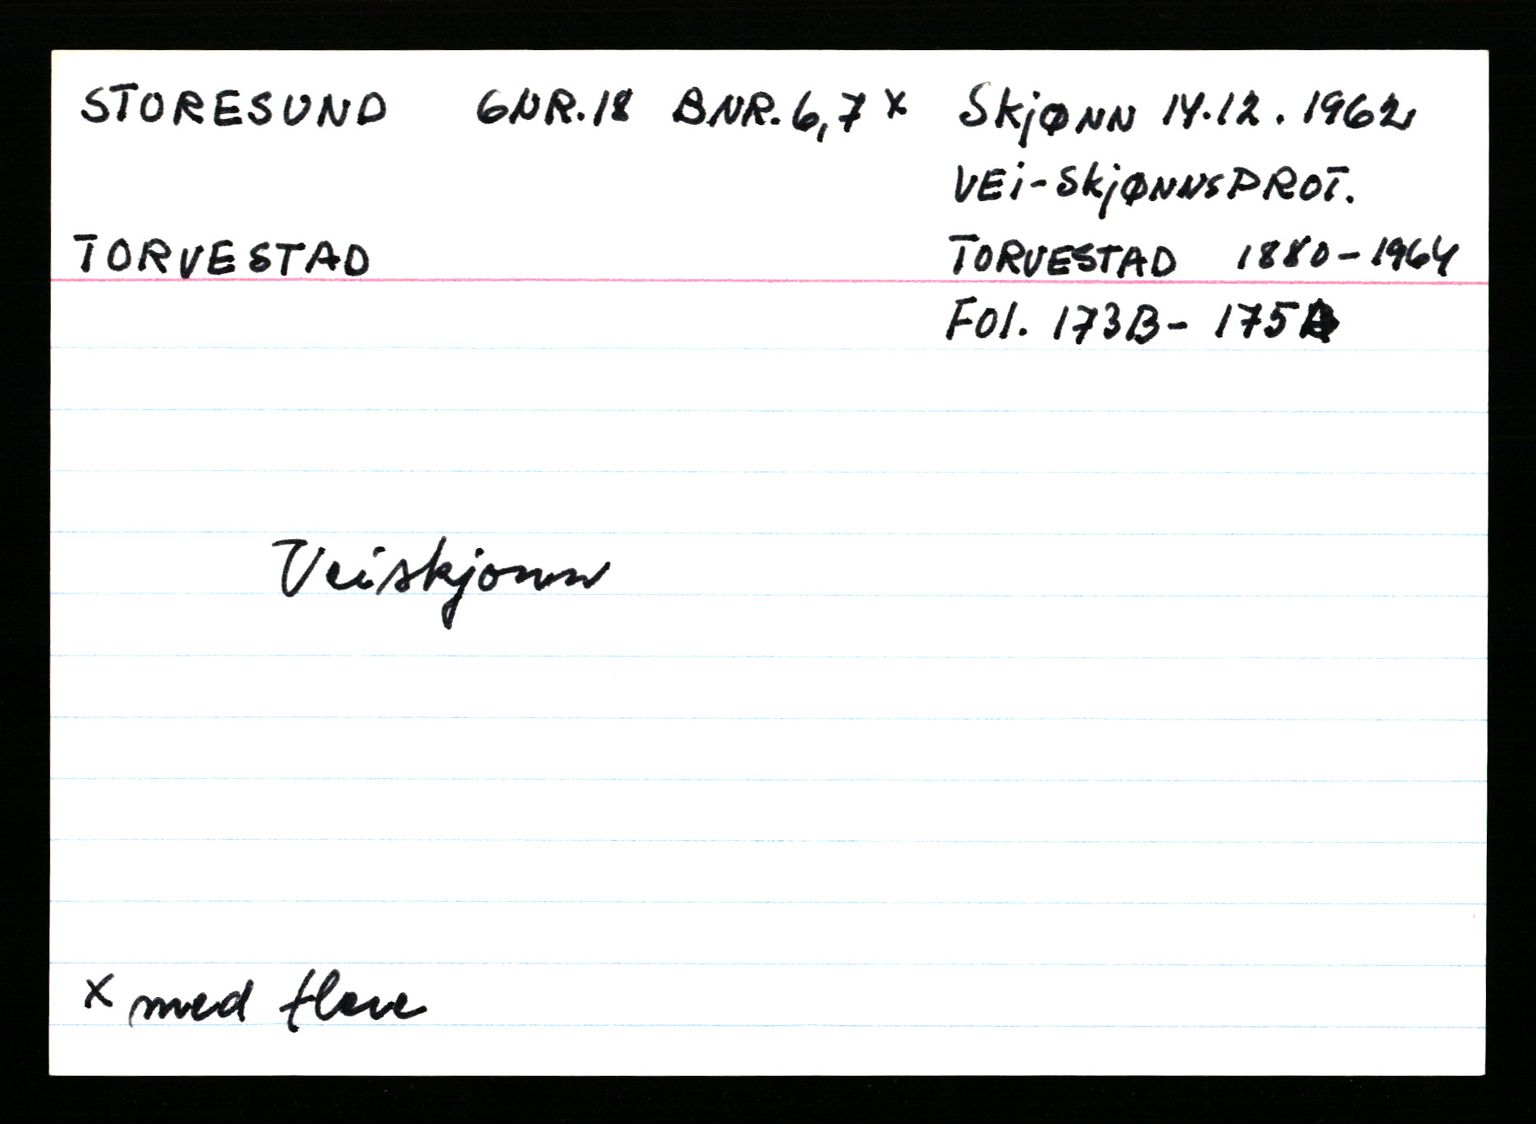 STORESUND GNR.18 BNR.6,7 x Skjønn 14.12.1962
VEi-SkjønnsPROT.
TORVESTAD TORVESTAD 1880-1964
Fol. 173B- 175A
Veiskjonn
x med flere